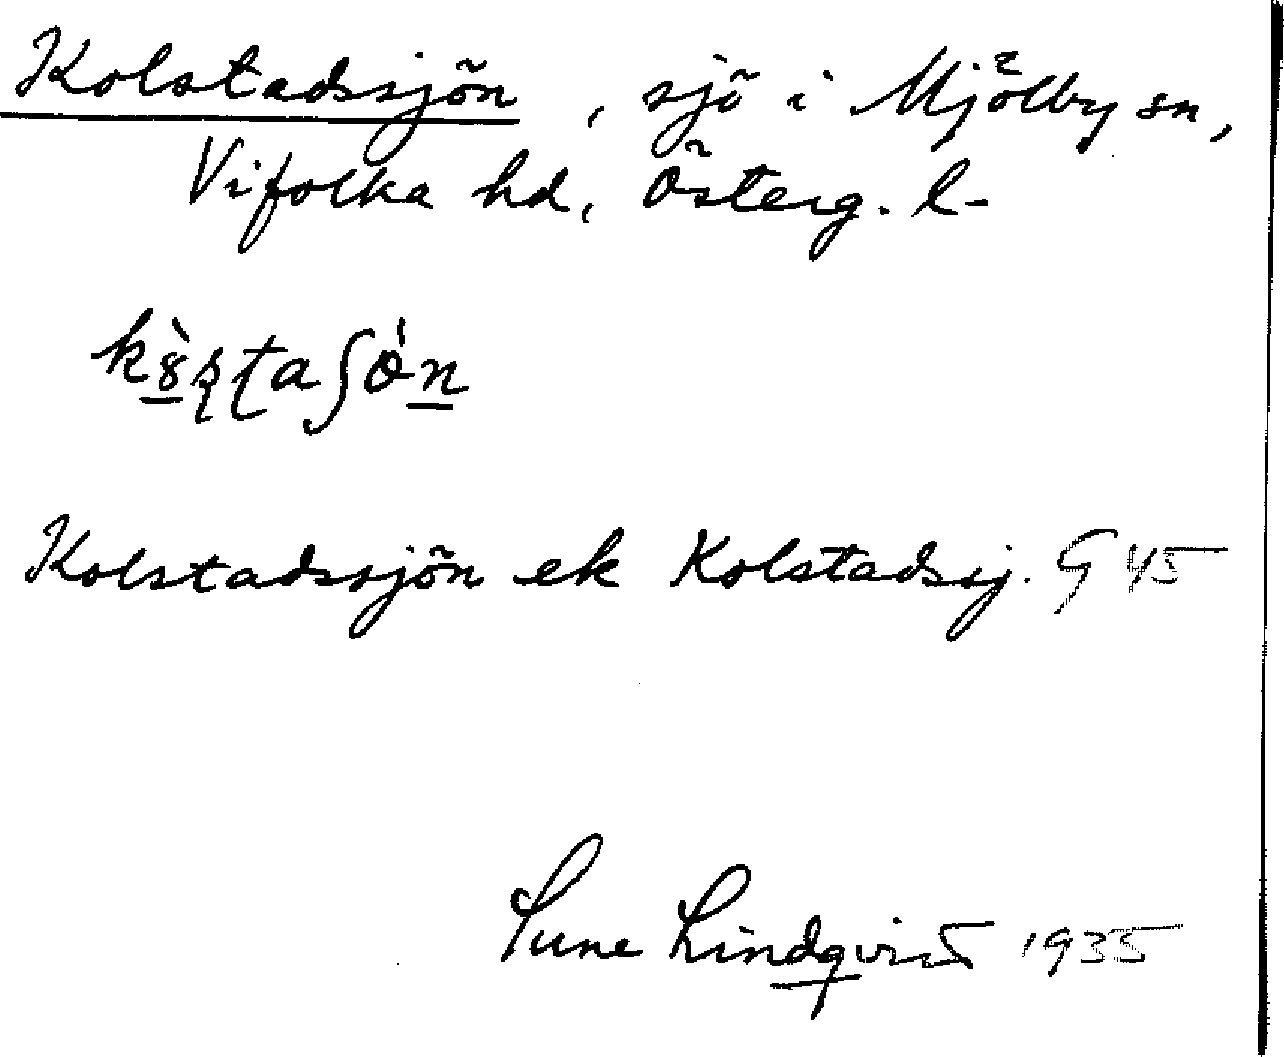 Kolstadssjön, sjö i Mjölby sn,
Vifolka hd, Österg. l-
Kolstadssjön ek Kolstadsj. G 45
Sune Lindqvist 1935